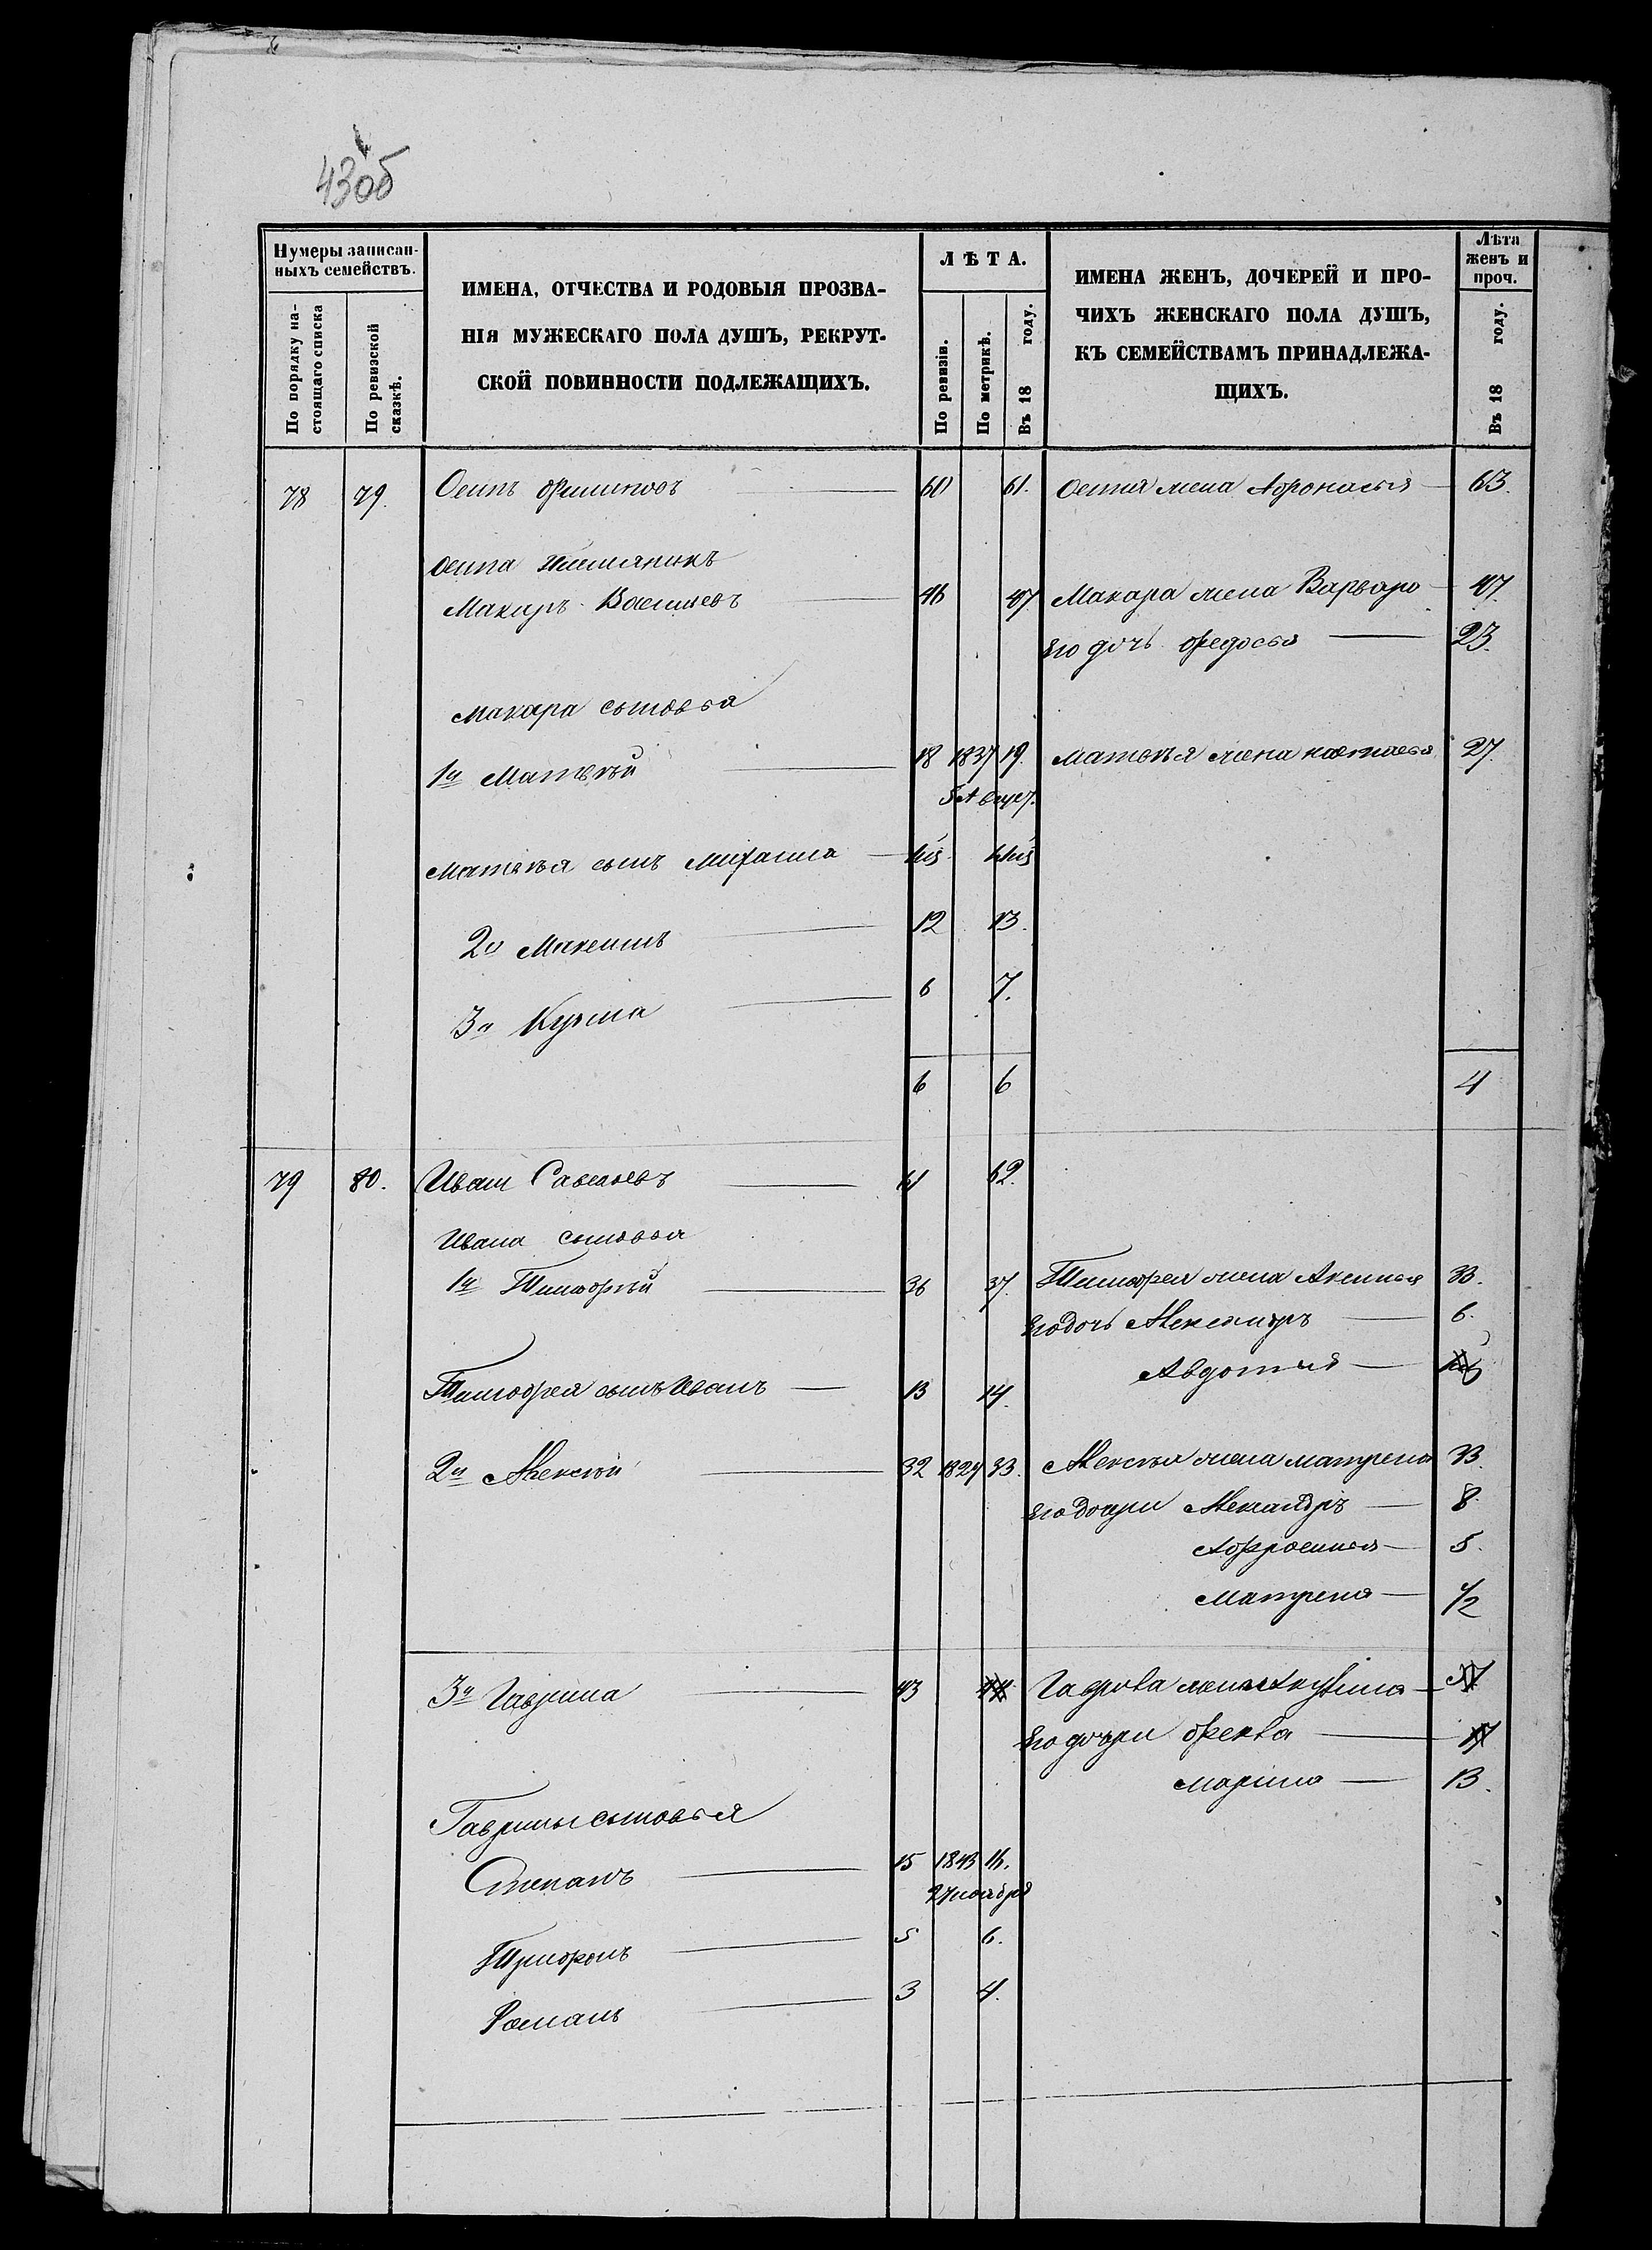 43об
Нумеры записан-
ныхъ семействъ.
По порядку на-
стоящаго списка
По ревизской
сказкѣ.
ИМЕНА, ОТЧЕСТВА И РОДОВЫЯ ПРОЗВА-
НІЯ МУЖЕСКАГО ПОЛА ДУШЪ, РЕКРУТ-
СКОЙ ПОВИННОСТИ ПОДЛЕЖАЩИХЪ.
ЛѢТА.
По ревизіи.
По метрикѣ.
Въ 18 году.
ИМЕНА ЖЕНЪ, ДОЧЕРЕЙ И ПРО-
ЧИХЪ ЖЕНСКАГО ПОЛА ДУШЪ,
КЪ СЕМЕЙСТВАМЪ ПРИНАДЛЕЖА-
ЩИХЪ.
Лѣта
женъ и
проч.
Въ 18 году.
78 79. Осипъ Филиповъ 60 61. Осипа жена Афонасья 63.
Осипа племяникъ
Макаръ Васильевъ 46 47 Макара жена Варвара 47.
Его дочь Федосья 23.
Макара сыновья
1й Матвѣй 18 1837 19. Матвѣя жена настасья 27.
5 Август.
Матвѣя сынъ Михаила
2й Максимъ 12 13.
3й Кузма 6 7.
6 6 4
79 80. Иванъ Савельевъ 61 62.
Ивана сыновья
1й Тимофѣй 36 37. Тимофея жена Аксинья 33.
Его дочь Александръ 6.
Авдотья
Тимофея сынъ Иванъ 13 14.
2й Алексѣй 32 1824 33. Алексѣя жена матрена 33.
Его дочри Александръ 8.
Афросинья 5.
Матрена 1/2
3й Гаврила 43 44 Гаврила жена Акулина 37
Его дочри Фекла 17
Марина 13.
Гаврилы сыновья
Степанъ 15 1843 16.
27 ноября
Трифонъ 5 6.
Романъ 3 4.